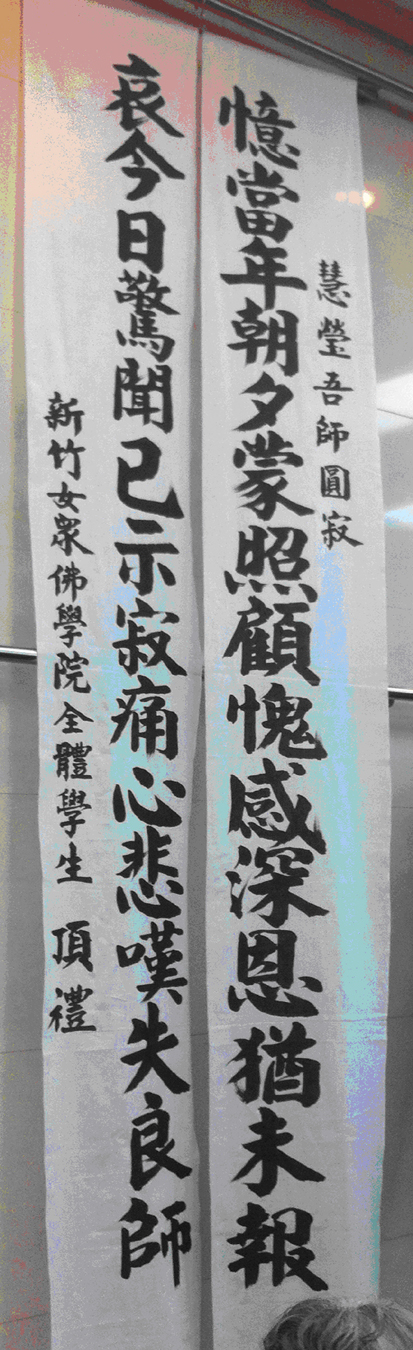 慧瑩吾師圓寂
憶當年朝夕蒙照顧愧感深恩猶未報
哀今日驚聞已示寂痛心悲嘆失良師
新竹女眾佛學院全體學生 頂禮